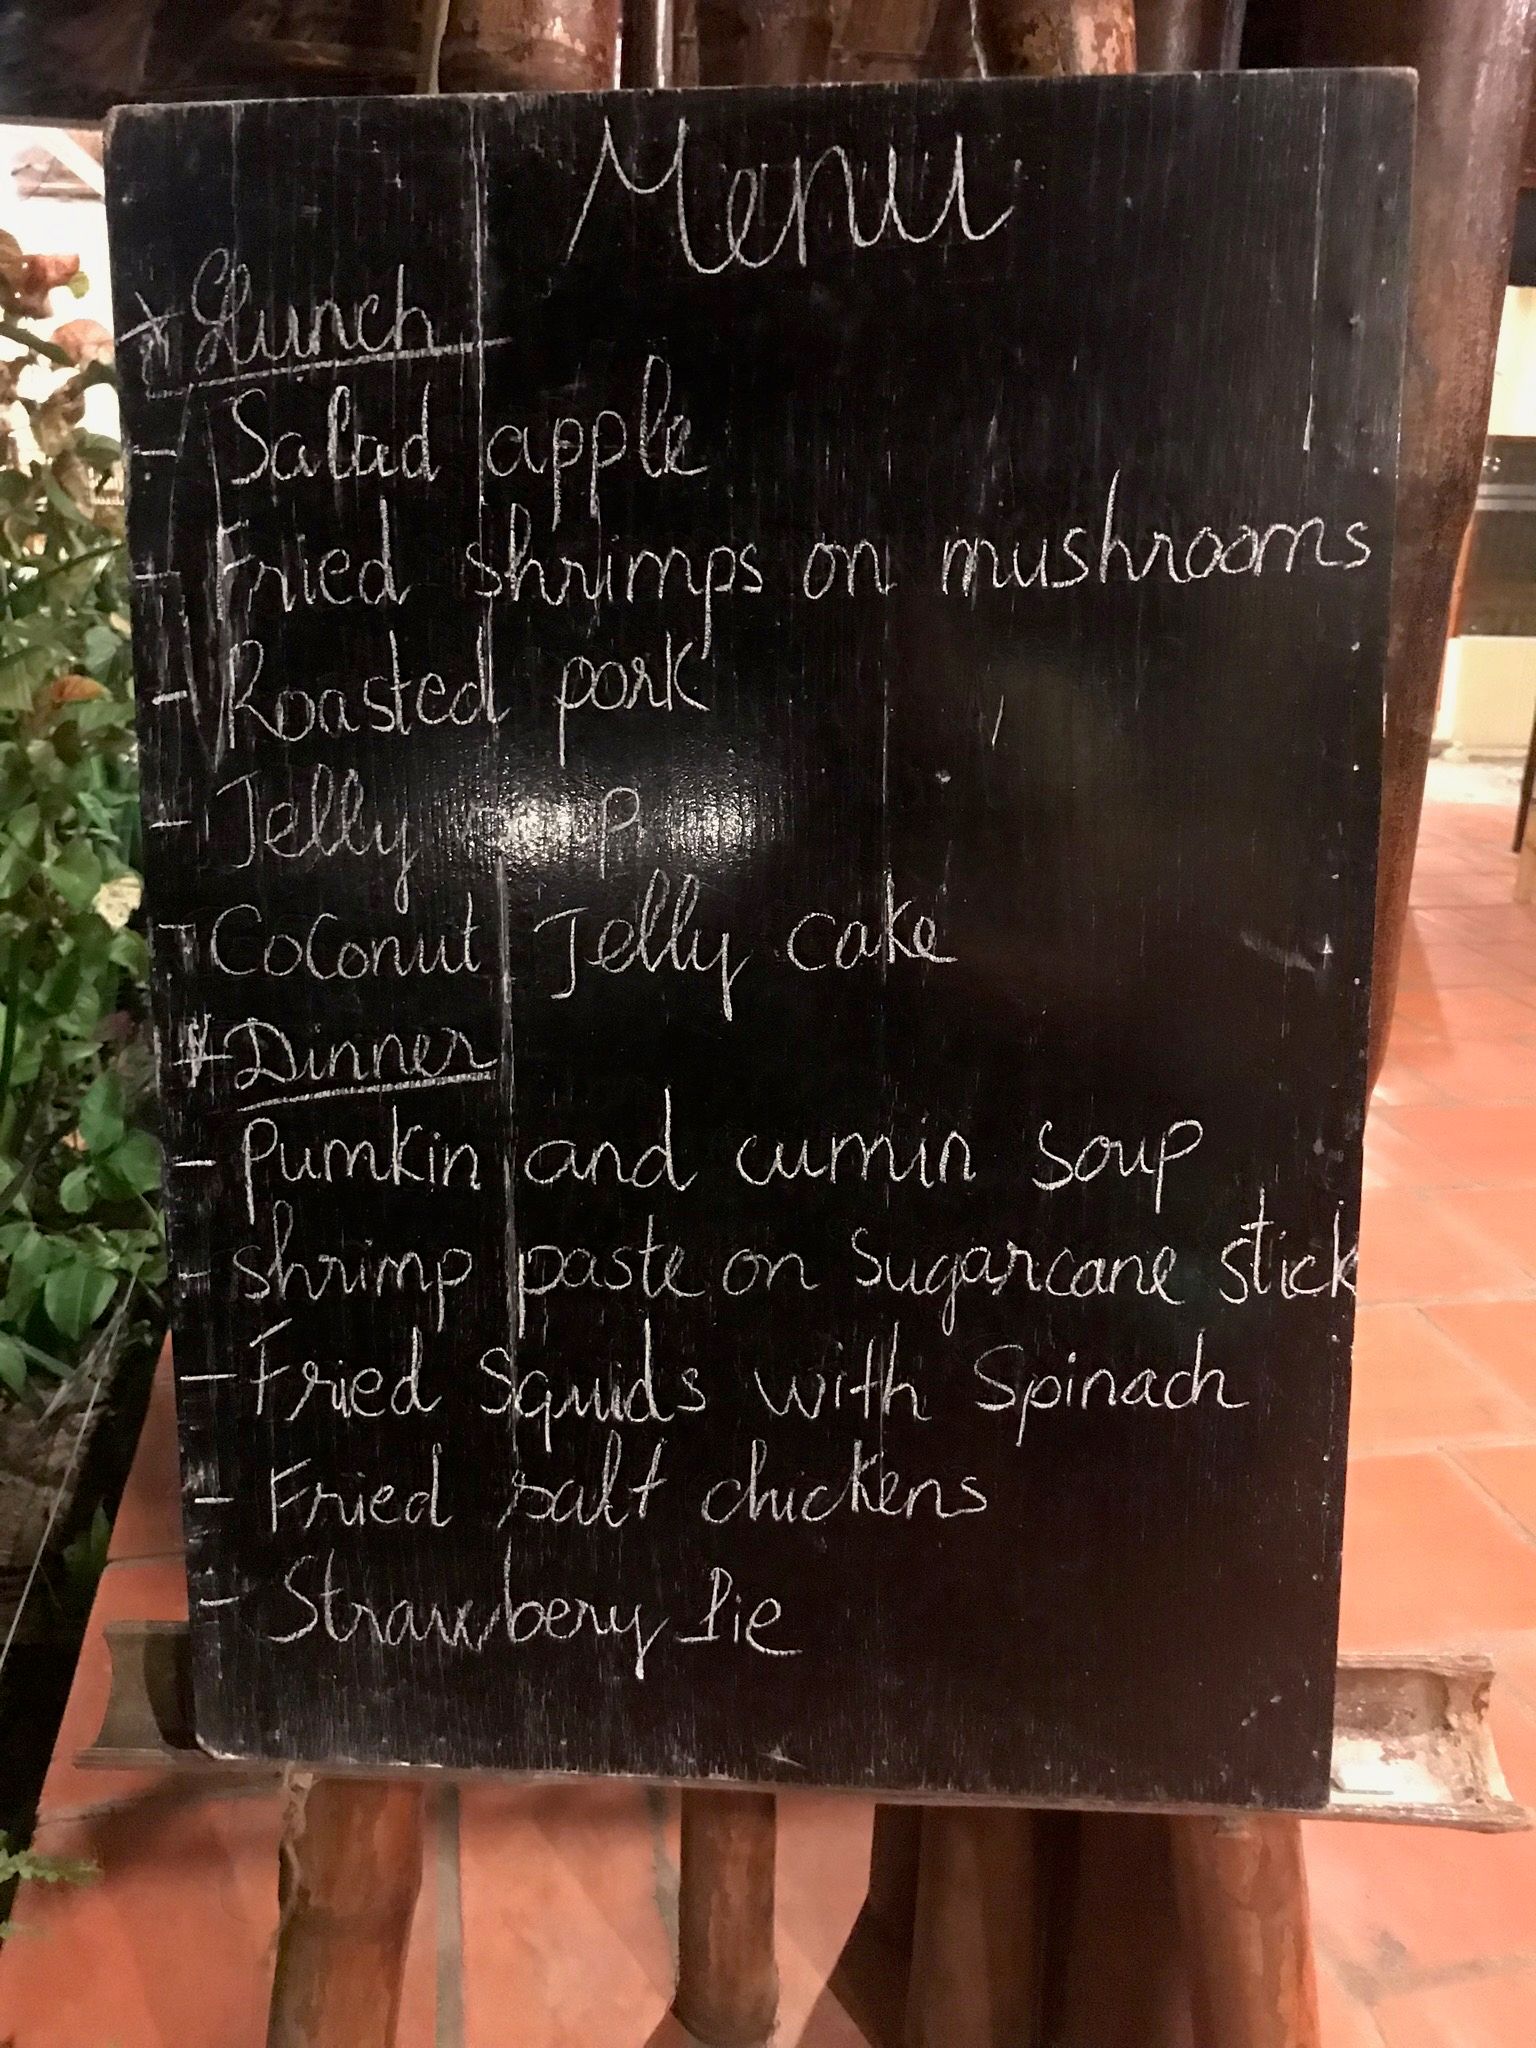 Menu
* Lunch
- Salad apple
- Fried shrimps on mushrooms
- Roasted pork
- Jelly soup
- Coconut Jelly cake
* Dinner
- Pumkin and cumin soup
- shrimp paste on sugarcane stick
- Fried squids with Spinach
- Fried salt chickens
- Strawbery Pie